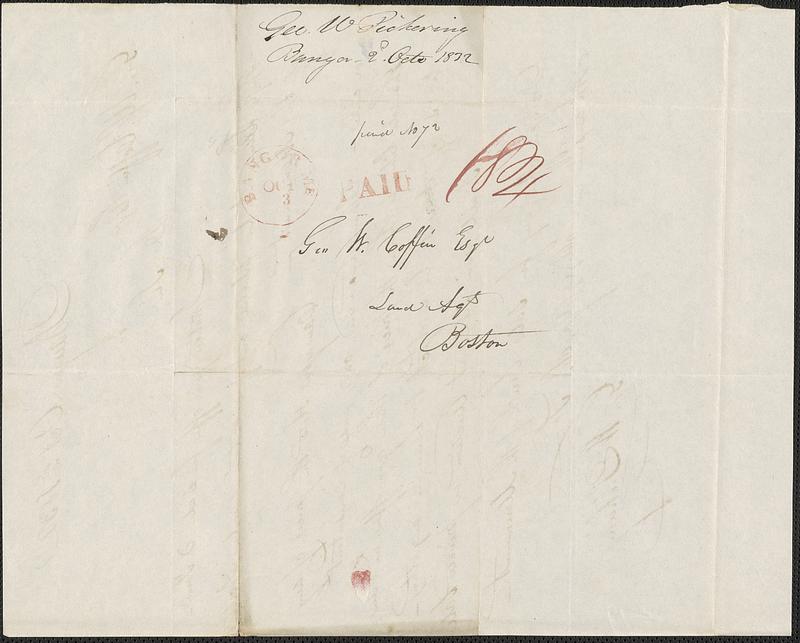 Geo. W Pickering
Bangor 2d. Octo 1832
paid No 72
BANGOR ME
OCT
3
PAID
18¾
Geo W. Coffin Esqr
Land Agt
Boston